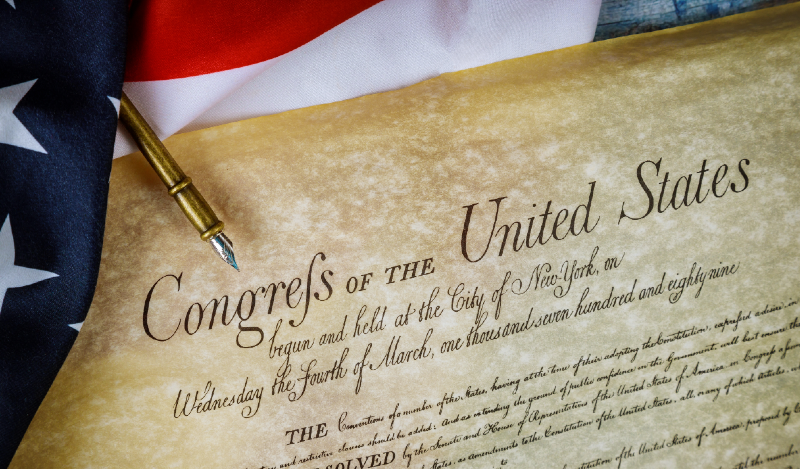 Congreſs OF THE United States
begun and held at the City of New York, on
Wednesday the Fourth of March, one thousand seven hundred and eighty nine
THE Conventions of a number of the States, having at the time of their adopting the Constitution, expreſsed a desire, in
and restrictive clauses should be added: And as extending the ground of public confidence in the Government, will best insure the
RESOLVED by the Senate and House of Representatives of the United States of America, in Congreſs
as amendments to the Constitution of the United States, all, or any of which Articles,
of the United States of America, proposed by